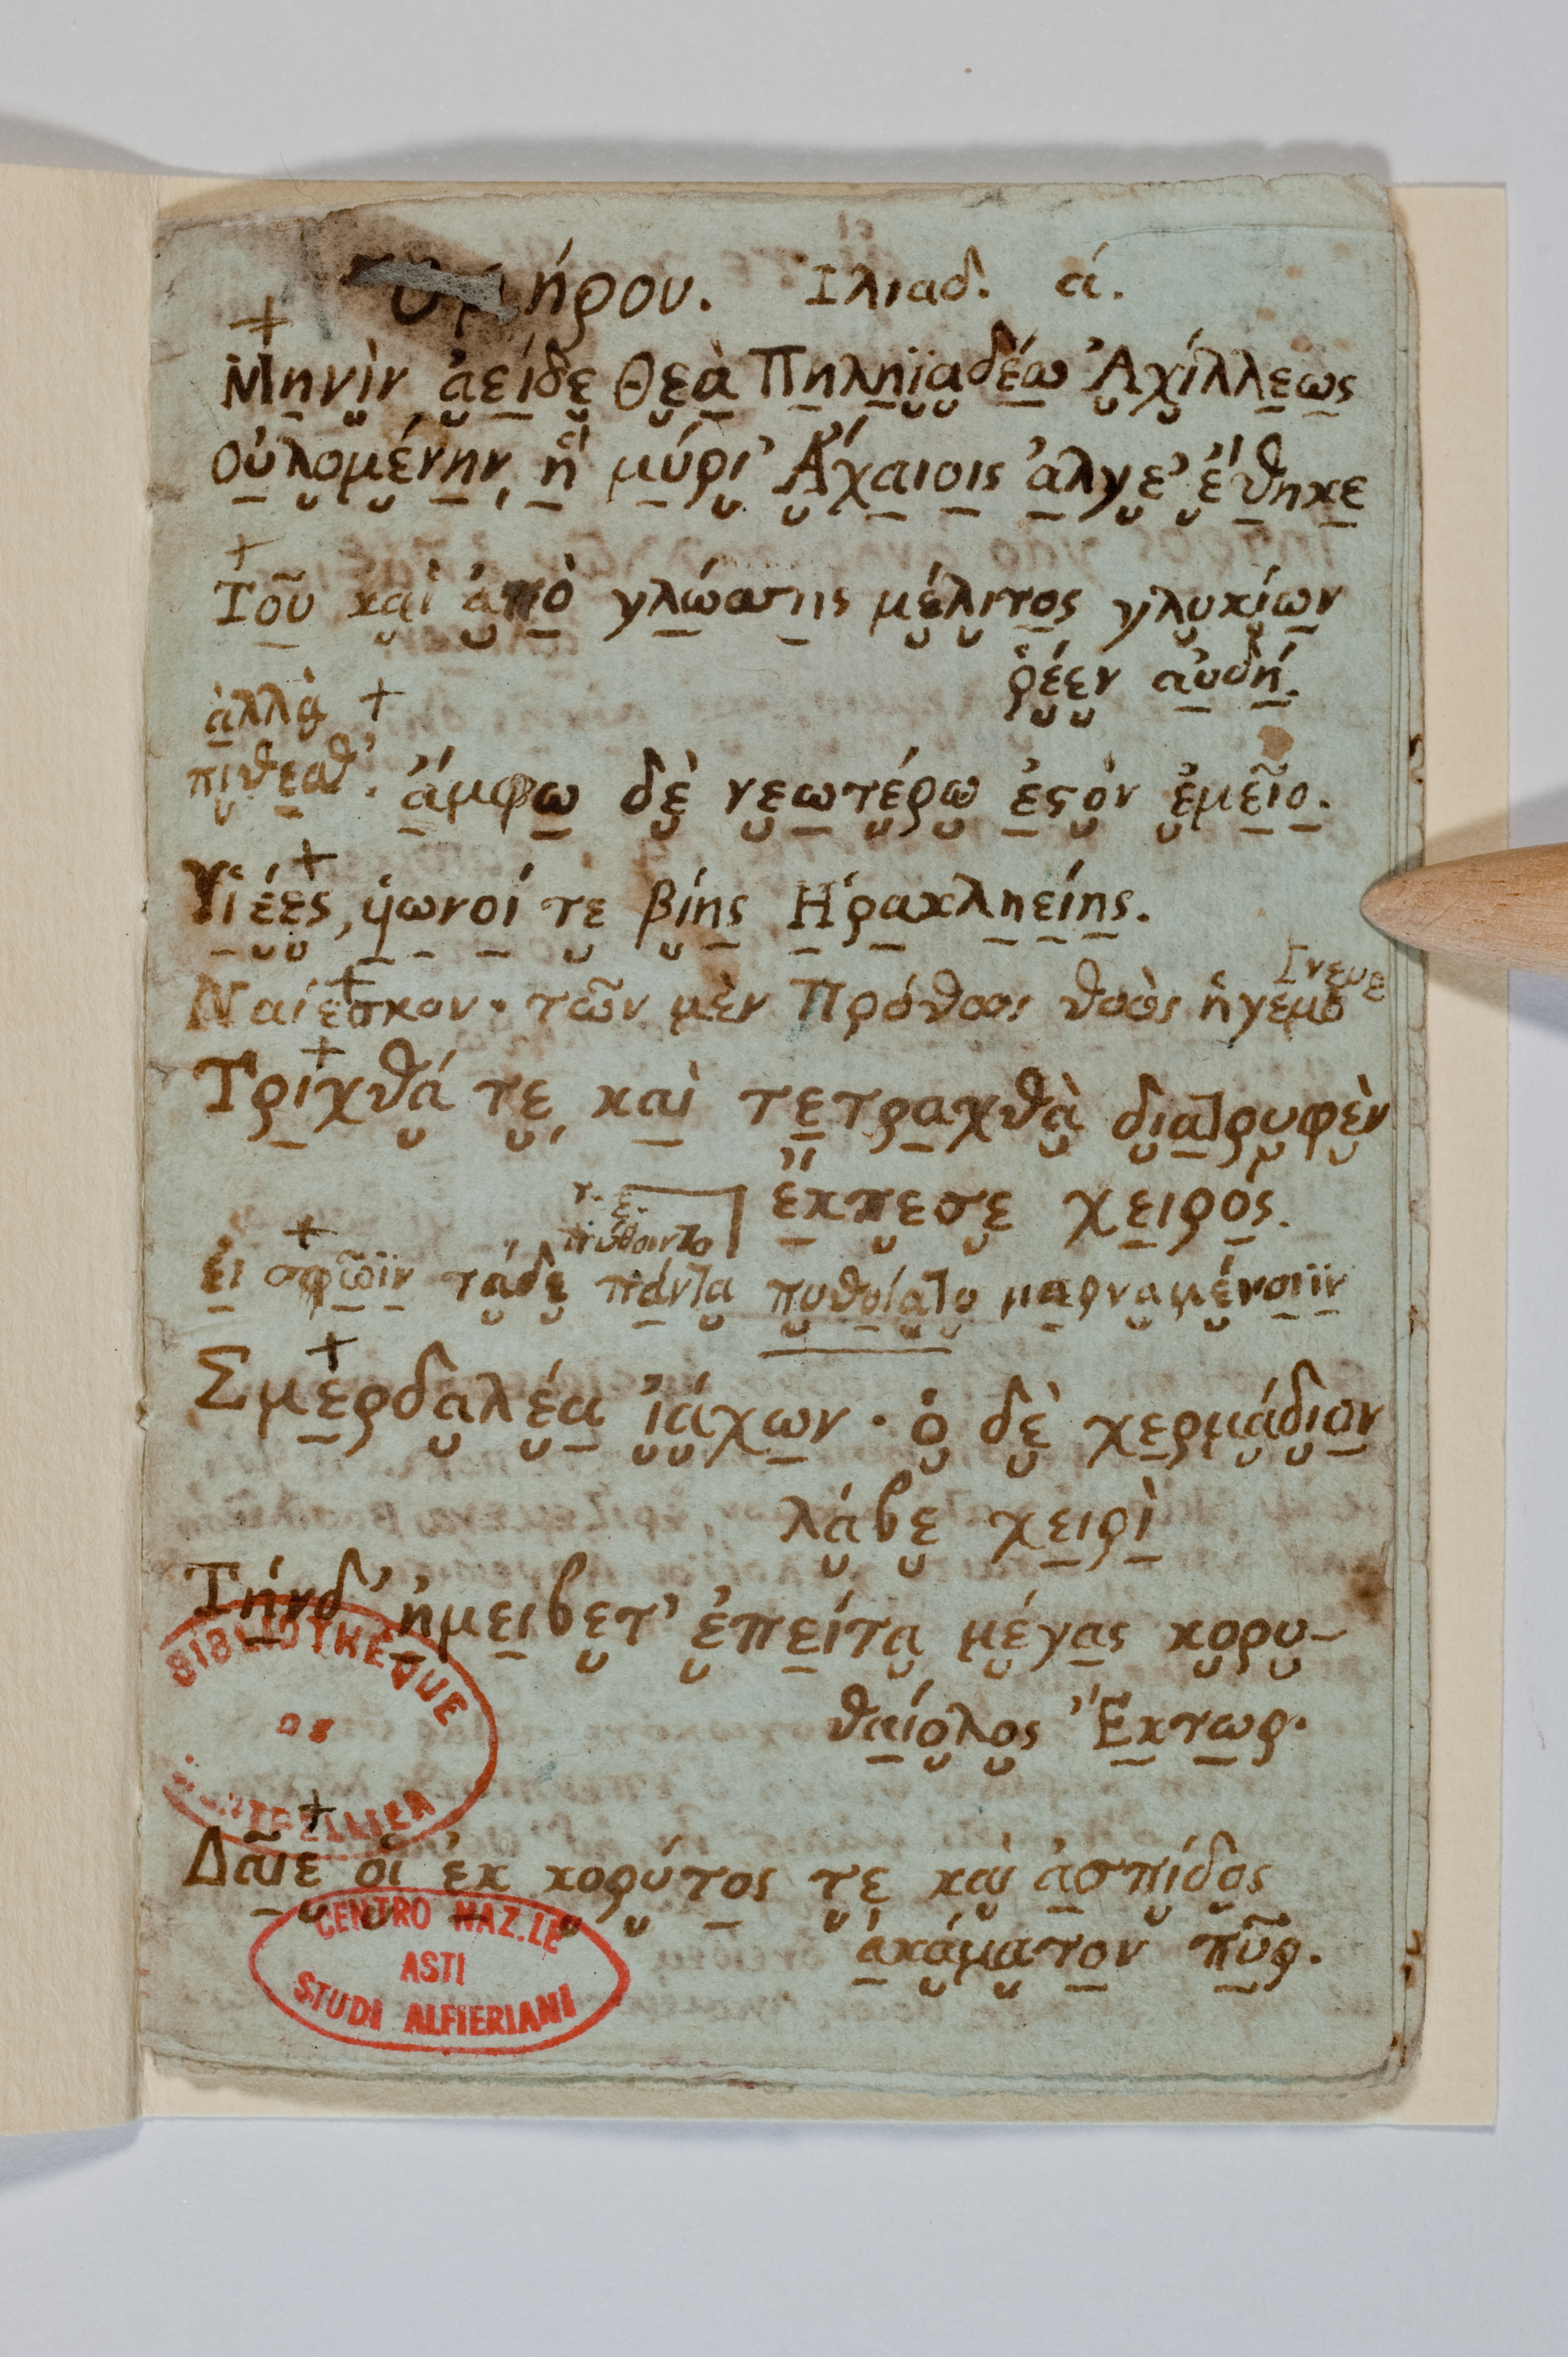 ήρου. Ιλιαδ. ά.
+
Μηνὶν ἀείδε Θεὰ Πηληϊαδέω Ἀχίλλεως
οὐλομένην, ἣ μύρι' Ἀχαιοις ἄλγε' ἔθηκε
+
Τοῦ καὶ ἀπὸ γλώσσης μέλιτος γλυκίων
ῥέεν αὐδή.
ἀλλὰ +
πίθεσθ'. ἄμφω δὲ νεωτέρω ἐςὸν ἐμεῖο.
+
Υἱέες, ὑωνοί τε βίης Ηρακληείης.
+
Ναίεσκον · τῶν μὲν Πρόθοος θοὸς ἡγεμό
+
Τριχθά τε, καὶ τετραχθὰ διατρυφὲν
ἔκπεσε χειρός.
πύθοιντο
+
ἐι σφῶϊν τάδε πάντα πυθοίατο μαρναμένοιϊν
+
Σμερδαλέα ἰάχων · ὁ δὲ χερμάδιον
λάβε χειρὶ
Τήνδ' ἠμειβετ' ἐπείτα μέγας κορυ-
θαίολος Ἕκτωρ.
BIBLIOTHÈQUE
DE
MONTPELLIER
+
Δαῖε οἱ ἐκ κορύτος τε καὶ ἀσπίδος
ἀκάματον πῦρ.
CENTRO NAZ.LE
ASTI
STUDI ALFIERIANI